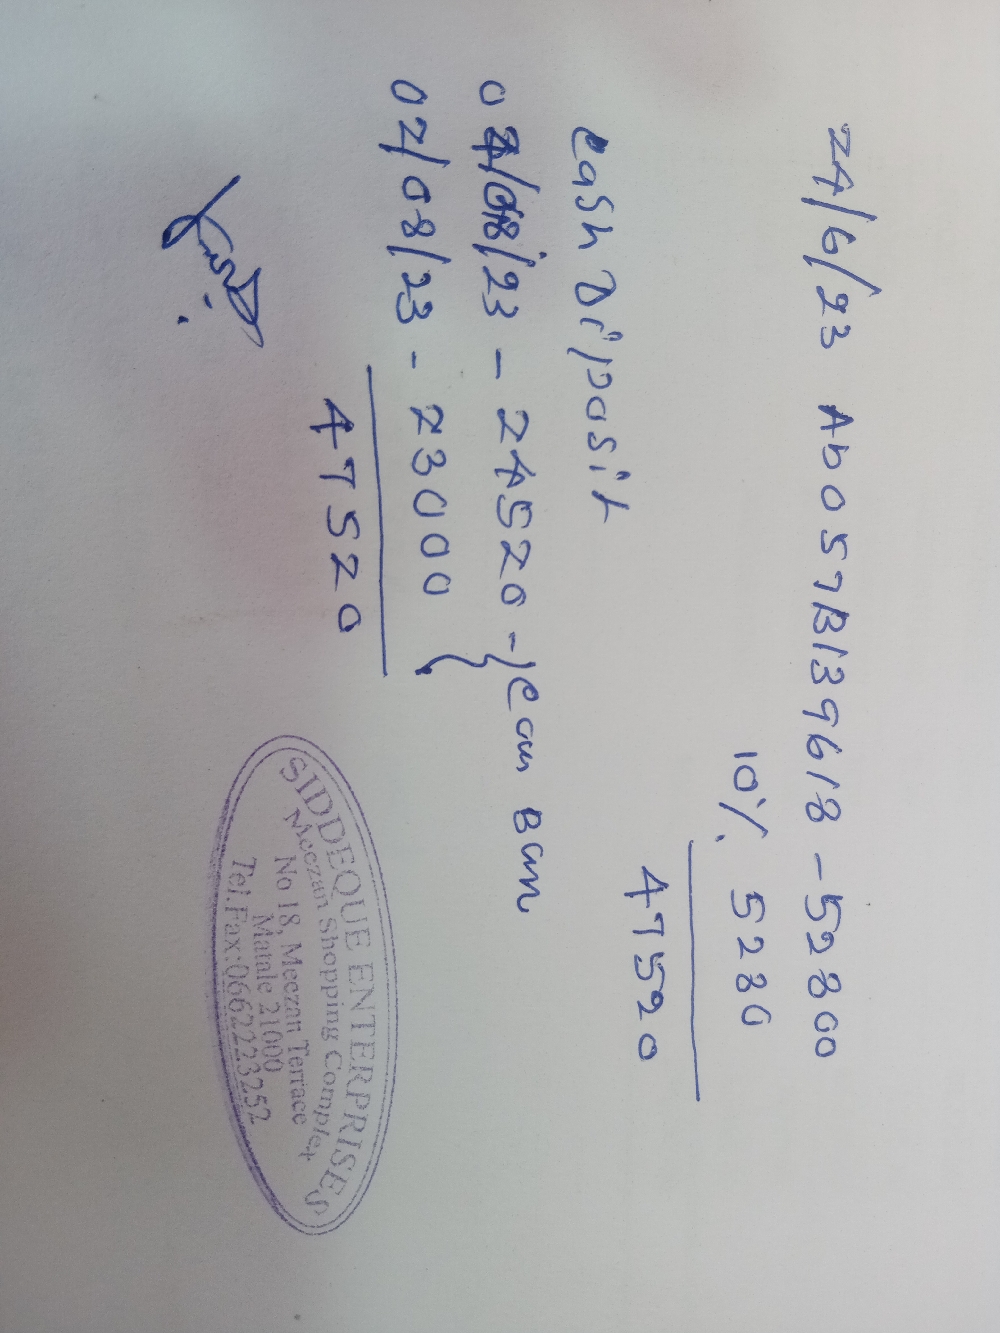 24/6/23 Ab057B139618 - 52800
10%. 5280
47520
Cash Diposit
02/08/23 - 24520 - Com Ban
02/08/23 - 23000
47520
SIDDEQUE ENTERPRISES
Meezan Shopping Complex
No 18, Meezan Terrace
Matale 21000
Tel.Fax:0662223252